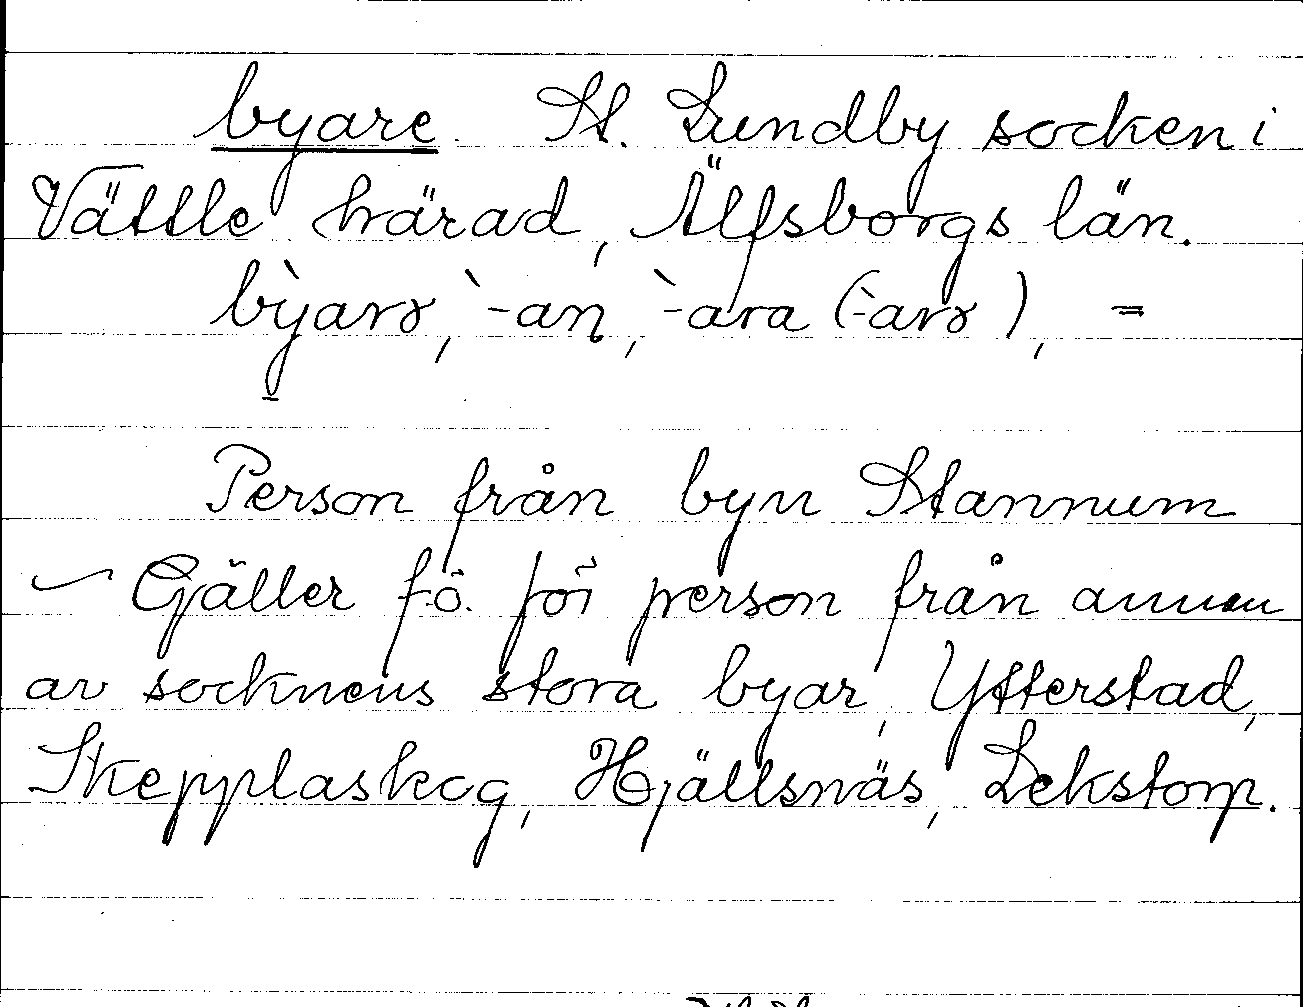 byare. St. Lundby socken i
Vättle härad, Älfsborgs län.
bỳarə, `-an, `-ara (`-arə), =
Person från byn Stannum
Gäller f.ö. för person från annan
av socknens stora byar, Ytterstad,
Skepplaskog, Hjällsnäs, Lekstorp.